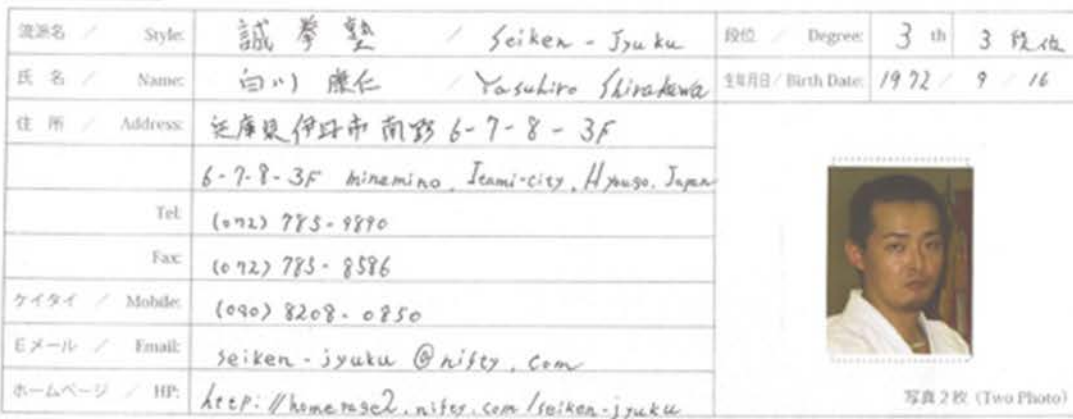 流派名 / Style: 誠拳塾 / Seiken - Jyuku 段位 / Degree: 3 th 3 段位
氏 名 / Name: 白川 康仁 / Yasuhiro Shirakawa 生年月日 / Birth Date: 1972 / 9 / 16
住 所 / Address: 兵庫県伊丹市南野 6-7-8-3F
6-7-8-3F minamino, Itami-city, Hyougo, Japan
Tel: (072) 785-9890
Fax: (072) 785-8586
ケイタイ / Mobile: (090) 8208-0850
Eメール / Email: seiken-jyuku@nifty.com
ホームページ / HP: http://homepage2.nifty.com/seiken-jyuku
写真2枚 (Two Photo)